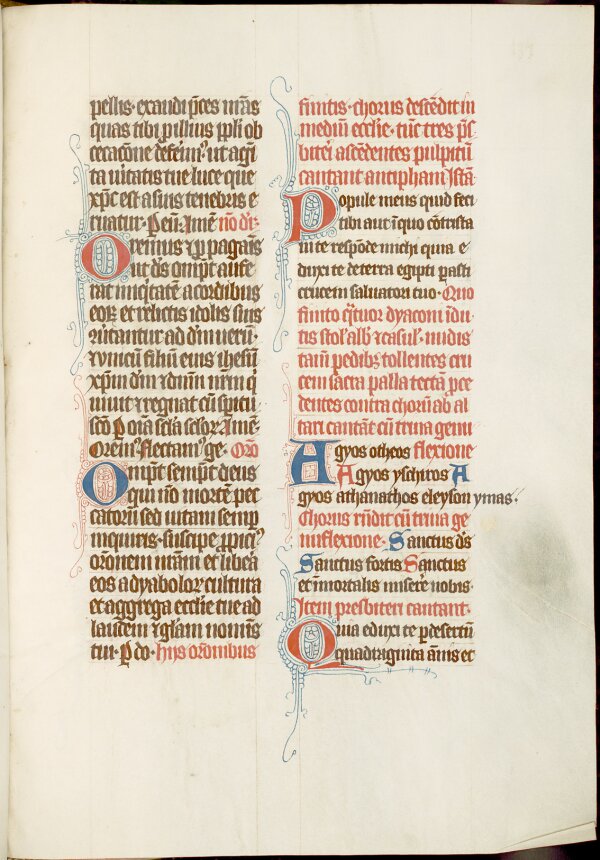 pellis· exaudi p̄ces n̄ras
quas tibi p illius pp̄li ob
cecac̄one deferim᷒· ut agn̄i
ta ūitatis tue luce que
xp̄c est a suis tenebris e
ruātur· Peu᷒ Amē nō dr̄·
Oremus ⁊ p paganis
ut dn̄s omp̄t aufe
rat iniq̄tatē a cordibus
eoꝝ et relictis idolis suis
⁊ūtantur ad dm̄ uerū·
⁊ unicū filiū eius ihesū
xp̄m dm̄ ⁊ dnm̄ nr̄m q̄
uiuit ⁊ regnat cū spiritu
sc̄o p oīa sc̄la sc̄loꝝ Amē·
Orem᷒ flectam᷒ ge· Oro
Omp̄t semp̄t deus
qui nō mortē pec
catorū sed uitam semp
inquiris· suscipe ꝓpici᷒
orōnem nr̄am et libera
eos a dyaboloꝝ cultura
et aggrega eccl̄ie tue ad
laudem ⁊ gl̄am nomīs
tui· P do· hijs ordinibus
finitis· chorus descēdit in
mediū eccl̄ie· tūc tres pr̄s
biteri ascēdentes pulpitū
cantant antiphanā istā·
Popule meus quid feci
tibi aut ī quo cōtrista
ui te respōde michi quia e
duxi te de terra egipti parasti
crucem saluatori tuo· Quo
finito q̄tuor dyaconi īdu
tis stol᷒ alb᷒ ⁊ casul᷒· nudis
tam̄ pedibꝫ tollentes cru
cem sacrā palla tectā p̄ce
dentes contra chorū ab al
tari cantāt cū trina genu
Agyos otheos flexione
Agyos yschiros A
gyos athanathos eleyson ymas·
Chorus r̄ndit cū trina ge
nuflexione· Sanctus ds̄
Sanctus fortis Sanctus
et īmortalis miserē nobis·
Item presbiteri cantant·
Quia eduxi te p desertū
quadraginta ān̄is et